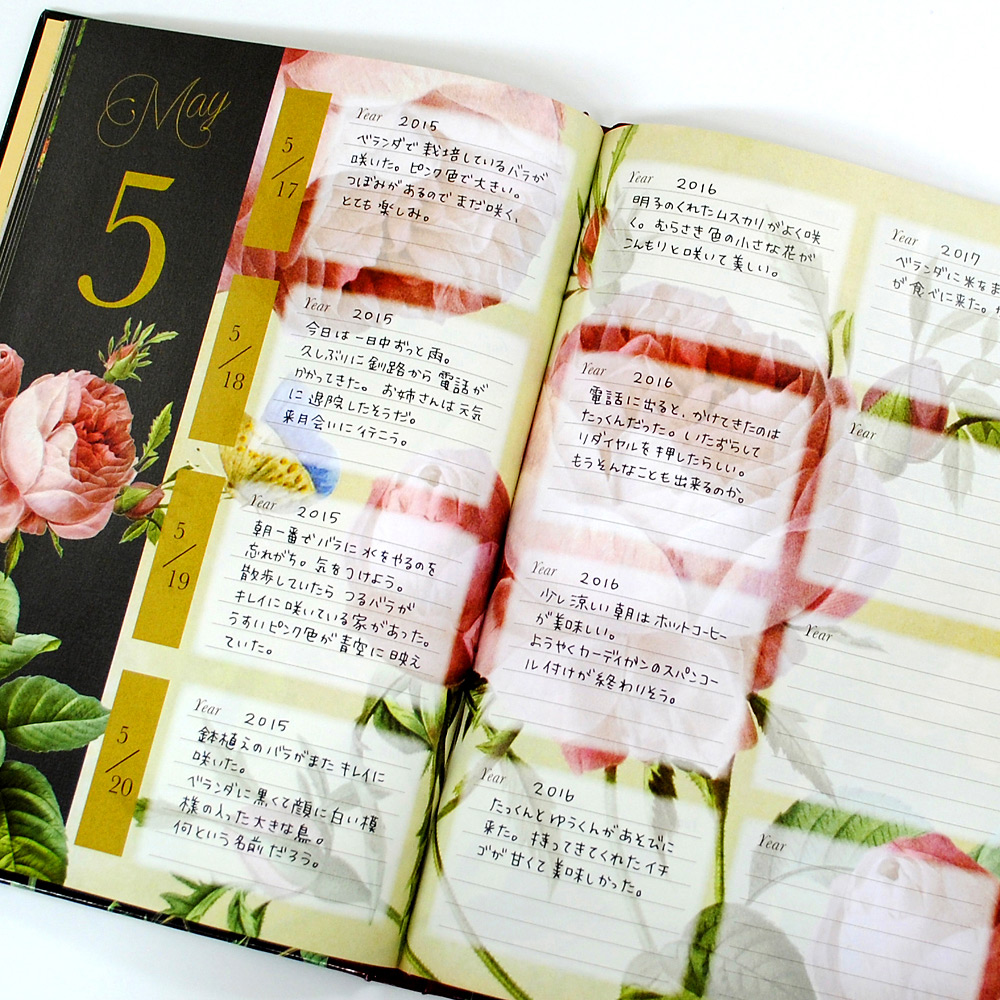 May
5
5/17
Year 2015
ベランダで栽培しているバラが
咲いた。ピンク色で大きい。
つぼみがあるのでまだ咲く、
とても楽しみ。
Year 2016
明子のくれたムスカリがよく咲
く。むらさき色の小さな花が
こんもりと咲いて美しい。
Year 2017
ベランダに米をま
が食べに来た。
5/18
Year 2015
今日は一日中ずっと雨。
久しぶりに釧路から電話が
かかってきた。お姉さんは元気
に退院したそうだ。
来月会いに行こう。
Year 2016
電話に出ると、かけてきたのは
たっくんだった。いたずらして
リダイヤルを押したらしい。
もうそんなことも出来るのか。
Year
5/19
Year 2015
朝一番でバラに水をやるのを
忘れがち。気をつけよう。
散歩していたら つるバラが
キレイに咲いている家があった。
うすいピンク色が青空に映え
ていた。
Year 2016
少し涼しい朝はホットコーヒー
が美味しい。
ようやくカーディガンのスパンコー
ル付けが終わりそう。
Year
5/20
Year 2015
鉢植えのバラがまたキレイに
咲いた。
ベランダに黒くて顔に白い模
様の入った大きな鳥。
何という名前だろう。
Year 2016
たっくんとゆうくんがあそびに
来た。持ってきてくれたイチ
ゴが甘くて美味しかった。
Year